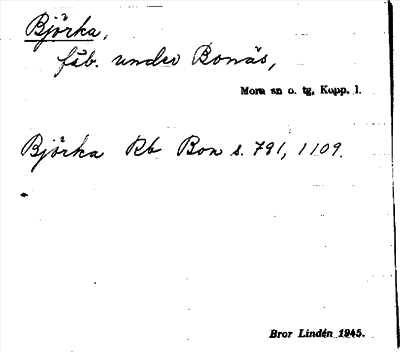 Björka,
fäb. under Bonäs,
Mora sn o. tg, Kopp. l.
Björka Rb Bon s. 791, 1109.
Bror Lindén 1945.